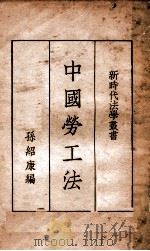 新時代法學叢書
中國勞工法
孫紹康編